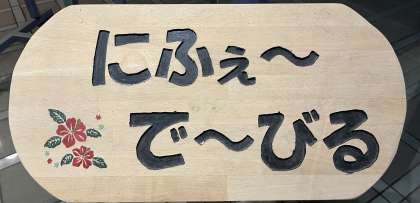 にふぇ～
で～びる